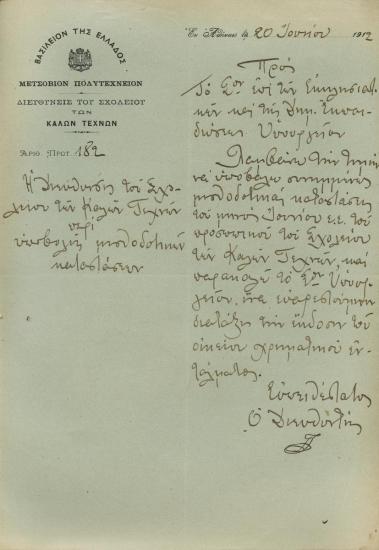 ΒΑΣΙΛΕΙΟΝ ΤΗΣ ΕΛΛΑΔΟΣ
ΜΕΤΣΟΒΙΟΝ ΠΟΛΥΤΕΧΝΕΙΟΝ
ΔΙΕΥΘΥΝΣΙΣ ΤΟΥ ΣΧΟΛΕΙΟΥ
ΤΩΝ
ΚΑΛΩΝ ΤΕΧΝΩΝ
ΑΡΙΘ. ΠΡΩΤ. 182
Ἡ Διεύθυνσις τοῦ Σχο-
λείου τῶν Καλῶν Τεχνῶν
περὶ
ὑποβολῆς μισθοδοτικῶν
καταστάσεων
Ἐν Ἀθήναις τῇ 20 Ἰουνίου 1912
Πρὸς
Τὸ Σον ἐπὶ τῶν Ἐκκλησιαστι-
κῶν καὶ τῆς Δημ. Ἐκπαι-
δεύσεως Ὑπουργεῖον
Λαμβάνω τὴν τιμὴν
νὰ ὑποβάλω συνημμένως
μισθοδοτικὰς καταστάσεις
τοῦ μηνὸς Ἰουνίου ἐ.ἔ. τοῦ
προσωπικοῦ τοῦ Σχολείου
τῶν Καλῶν Τεχνῶν, καὶ
παρακαλῶ τὸ Σον Ὑπουρ-
γεῖον, ἵνα εὐαρεστούμενον
διατάξῃ τὴν ἔκδοσιν τοῦ
οἰκείου χρηματικοῦ ἐν-
τάλματος.
Εὐπειθέστατος
Ὁ Διευθυντὴς